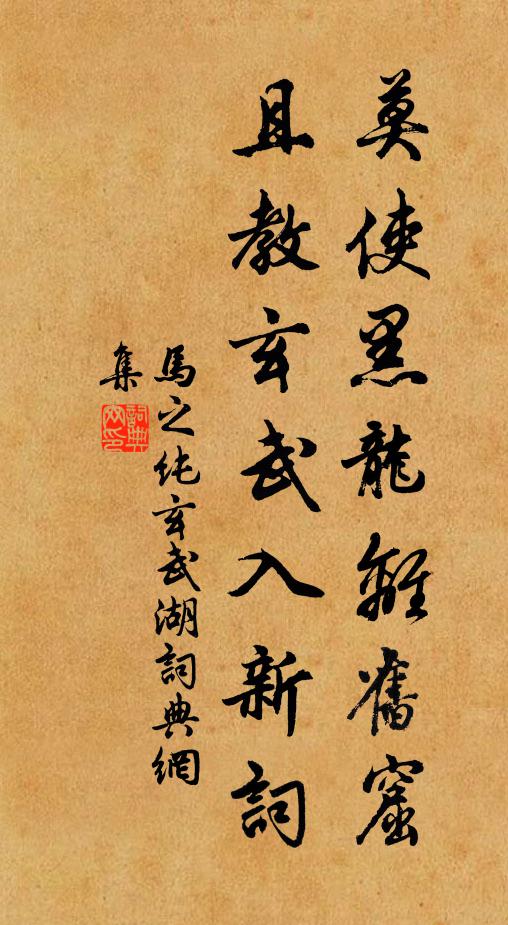 莫使黑龍離舊窟
且教玄武入新詞
馬之純玄武湖詞典網
集
詞典
网印